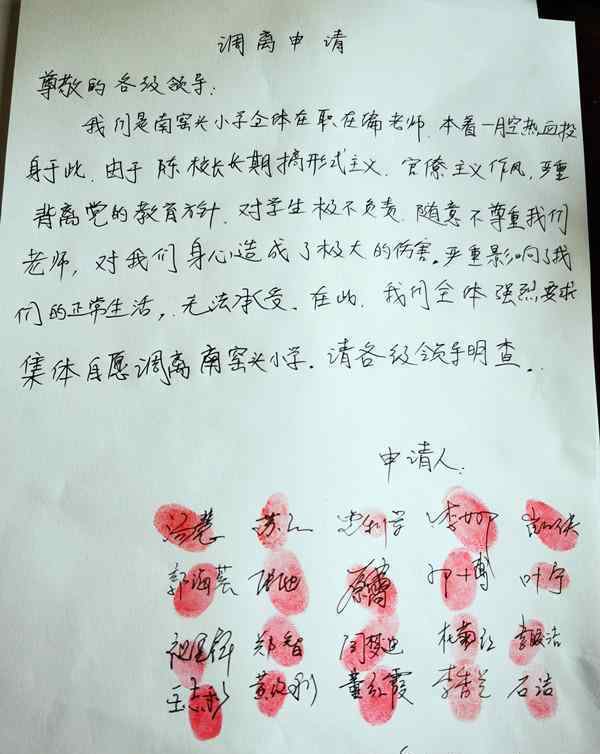 调离申请
尊敬的各级领导：
我们是南窑头小学全体在职在编老师，本着一腔热血投
身于此，由于陈校长长期搞形式主义、官僚主义作风，严重
背离党的教育方针，对学生极不负责，随意不尊重我们
老师，对我们身心造成了极大的伤害。严重影响了我
们的正常生活，无法承受。在此，我们全体强烈要求
集体自愿调离南窑头小学。请各级领导明查。
申请人：
李娜
郭海芸 叶宁
郑智 闫梦迪
王志彤 董红霞 李梦兰 石洁